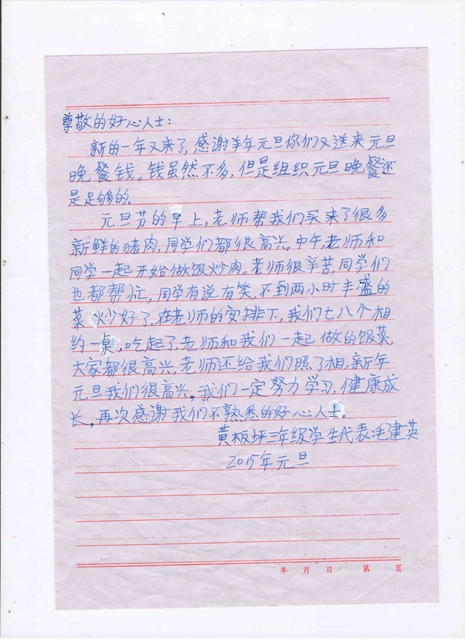 尊敬的好心人士：
新的一年又来了，感谢羊年元旦你们又送来元旦
晚餐钱。钱虽然不多，但是组织元旦晚餐还
是足够的。
元旦节的早上，老师帮我们买来了很多
新鲜的猪肉，同学们都很高兴。中午老师和
同学一起开始做饭炒肉。老师很辛苦，同学们
也都帮忙，同学有说有笑，不到两小时丰盛的
菜炒好了，在老师的安排下，我们七八个相
约一桌，吃起了老师和我们一起做的饭菜，
大家都很高兴，老师还给我们照了相，新年
元旦我们很高兴。我们一定努力学习，健康成
长。再次感谢我们不熟悉的好心人士。
黄板坪三年级学生代表：毛建英
2015年元旦
年 月 日 第 页